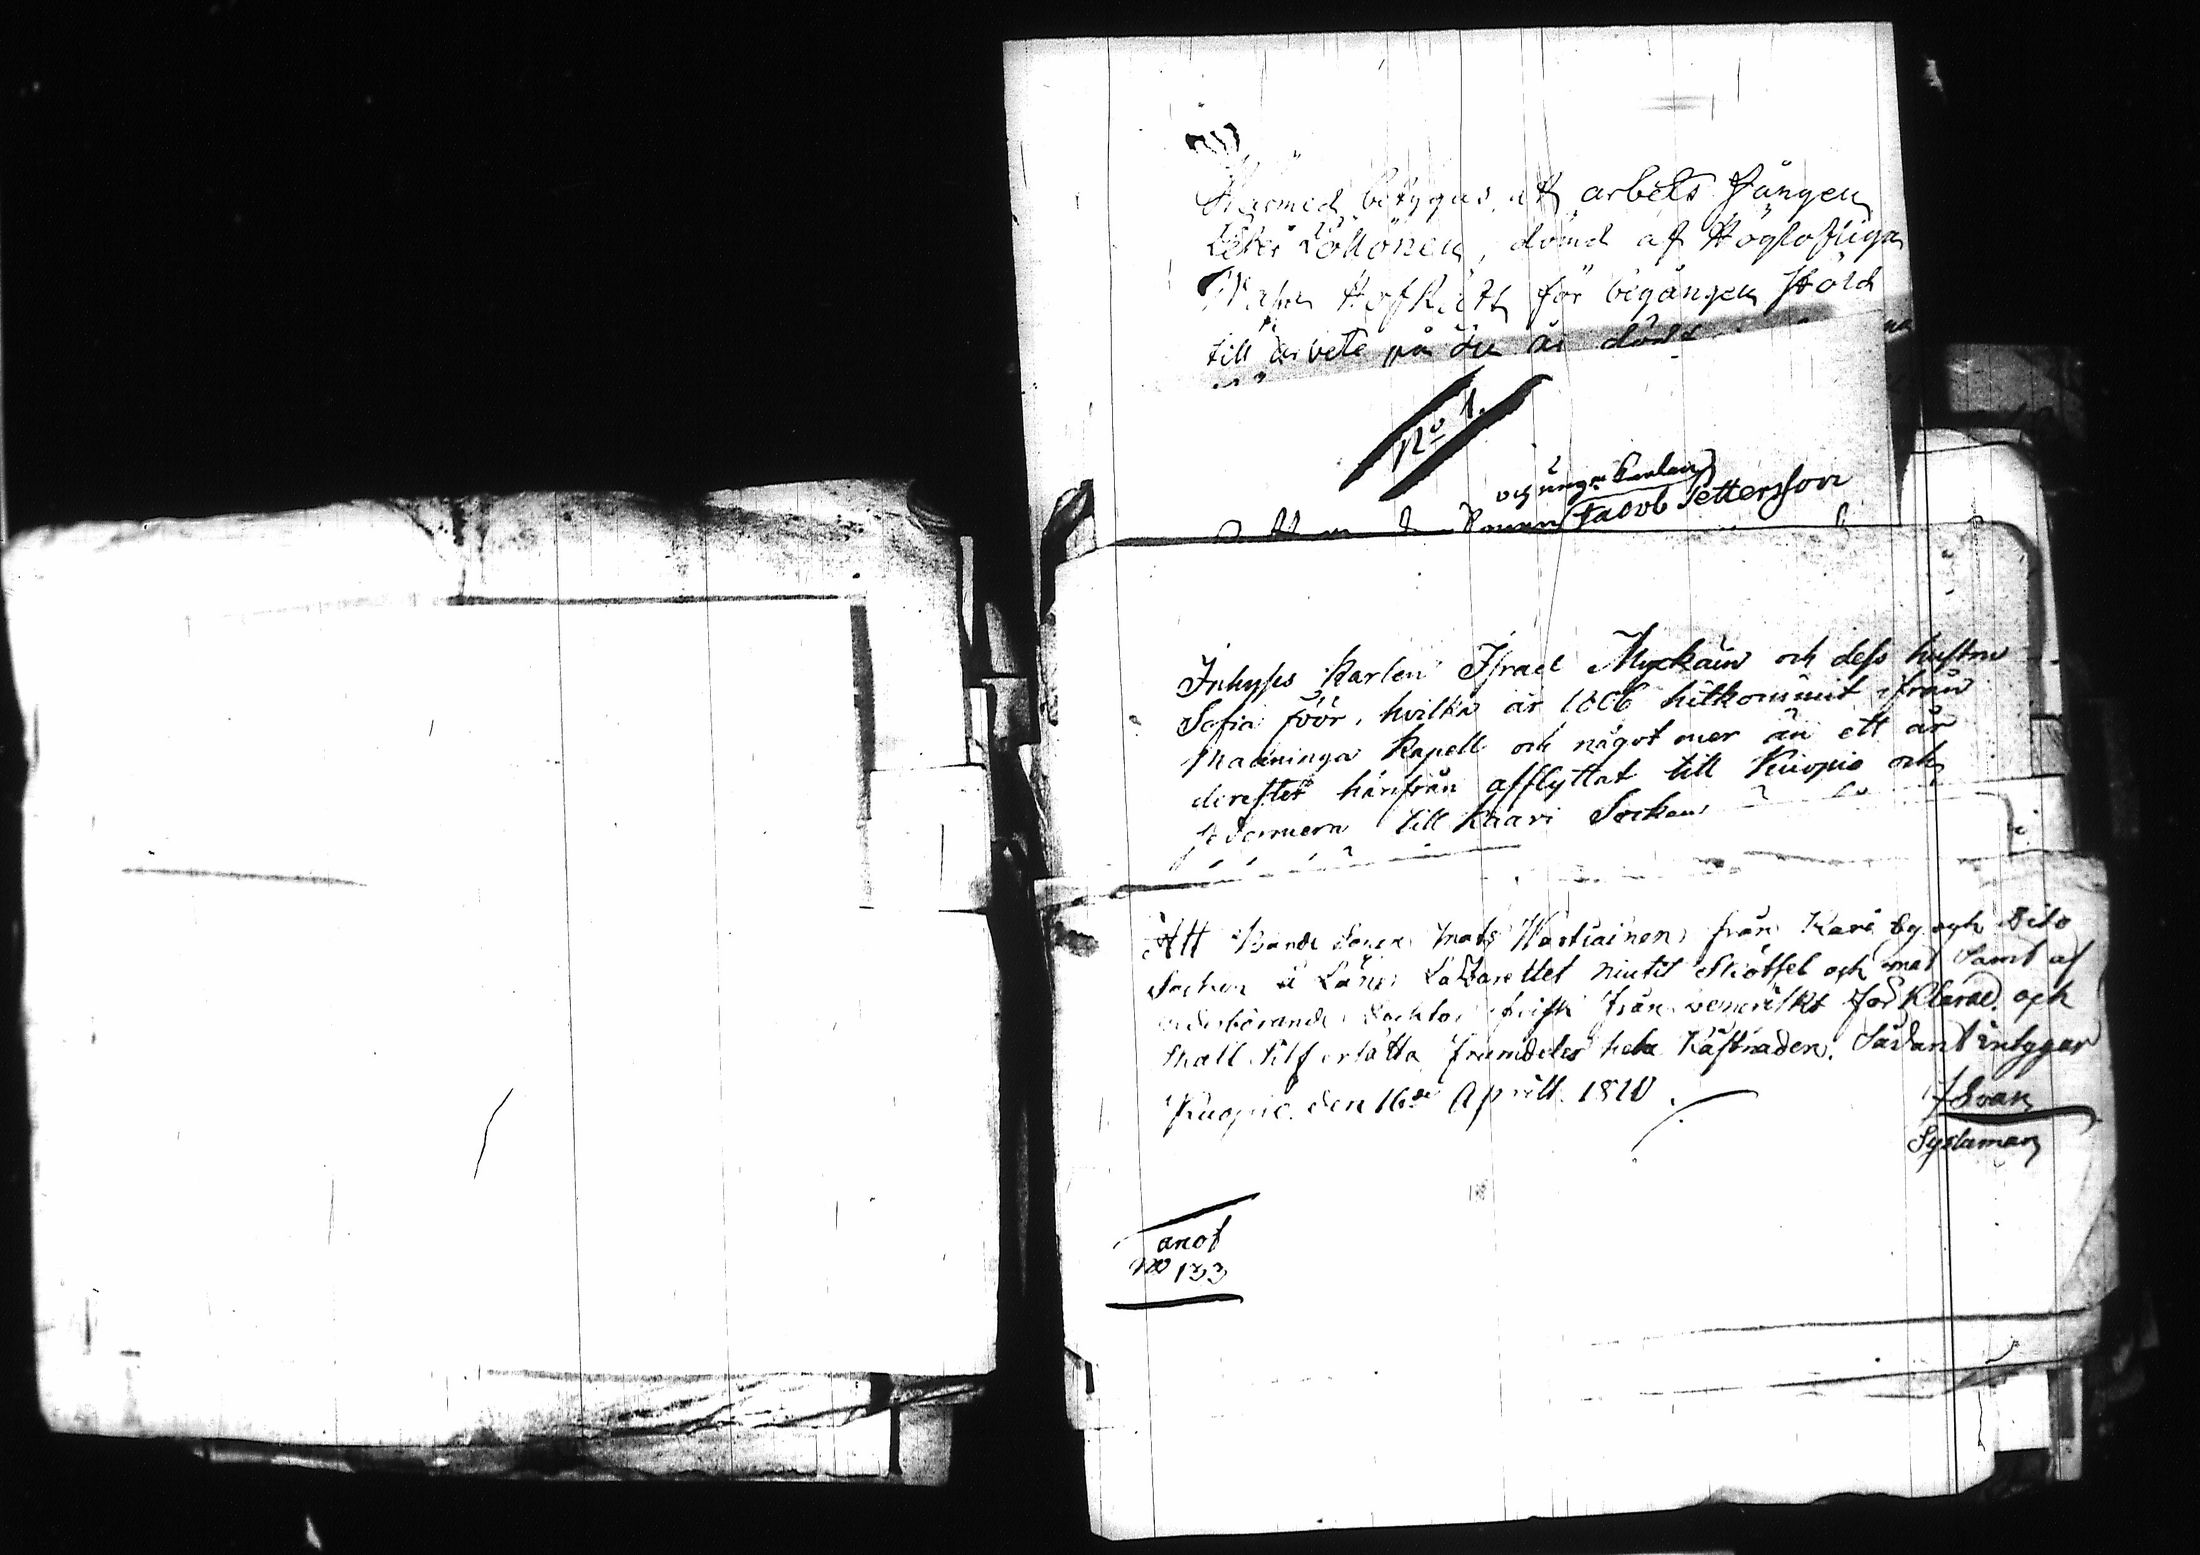 Härmed betygas, att arbets Fången
Petter Pöllönen, dömd af Höglofliga
Wasa HofRätt för begången Stöld
till arbete på är dömd
No 1.
och unga karlen
Bonen Jacob Pettersson
Inhyses Karlen Israel Myckäin och dess hustru
Sofia Föör, hvilka år 1806 hitkommit ifrån
Maaninga Kapell och något mer än ett år
derefter härifrån afflyttat till Kuopio och
sedermera till Kaavi Socken
Att Bonde Sonen Mats Wartiainen från Kavi by och dito
Socken å Läns Lazarettet niutit Skiötsel och mat samt af
vederbörande Docktor frisk från veneriskt förklarad, och
skall sielf ersätta framdeles hela Kåstnaden. Sådant intygar
Kuopio den 16de Aprill 1810.
J Svan
Syslaman
anot
No 133